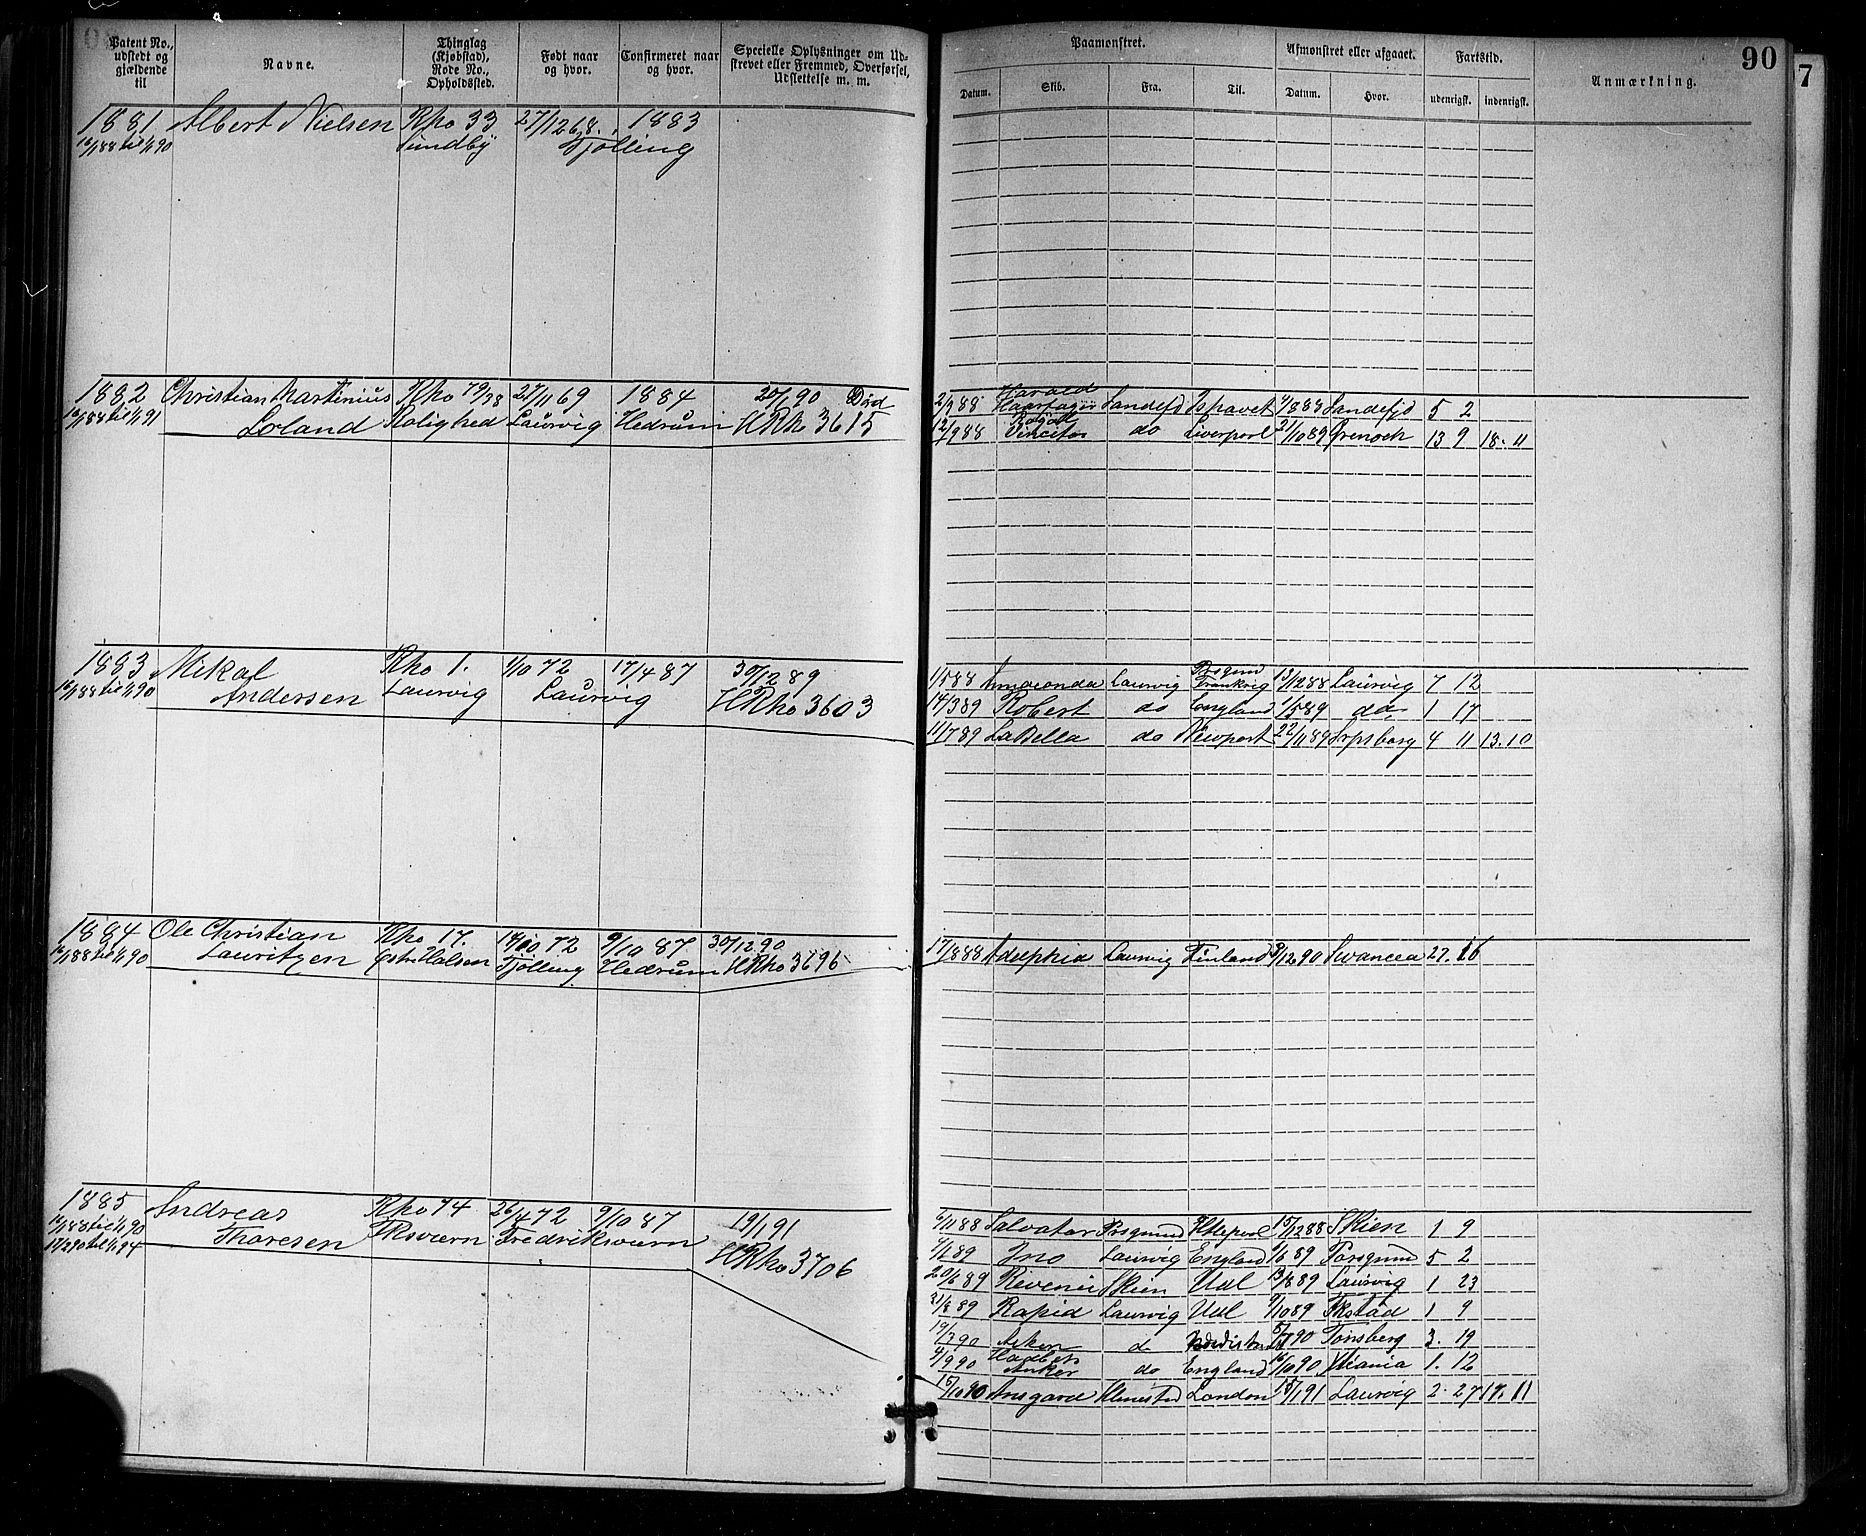 Patent No., udstedt og gjældende til
Navne.
Thinglag (Kjøbstad), Rode No., Opholdssted.
Født naar og hvor.
Confirmeret naar og hvor.
Specielle Oplysninger om Udskrevet eller Fremmed, Overførsel, Udslettelse m. m.
Paamønstret.
Afmønstret eller afgaaet.
Fartstid.
90
7
Anmærkning.
Datum. Skib. Fra. Til. Datum. Hvor. udenrigsk. indenrigsk.
1881 Albert Nielsen Rho 33 27/12 68. 1883
16/1 88 til 1/1 90 Sundby Tjølling
1882 Christian Martinius Rho 79/98 27/11 69 1884 20/1 90 Død
16/1 88 til 1/1 91 Loland Rolighed Laurvig Hedrum HRho 3615
Harald
2/3 88 Haarfager Sandefd Ishavet 4/8 88 Sandefjd 5 2
12/9 88 Vincitor do Liverpool 21/10 89 Grenock 13 9 18. 11
1883 Mikal Rho 1. 1/10 72 17/4 87 30/12 89
16/1 88 til 1/1 90 Andersen Laurvig Laurvig HRho 3603
1/5 88 Annaconda Laurvig Frankrig 13/12 88 Laurvig 7 12
14/3 89 Robert do England 1/5 89 do 1 17
11/7 89 LaBella do Newport 22/11 89 Srpsborg 4 11 13.10
1884 Ole Christian Rho 17. 14/10 72 9/10 87 30/12 90
16/1 88 til 1/1 90 Lauritzen Østre Halsen Tjølling Hedrum HRho 3696
17/8 88 Adelphia Laurvig Finland 3/12 90 Swancea 27. 16
1885 Andreas Rho 74 26/4 72 9/10 87 19/1 91
16/1 88 til 1/1 90 Thoresen Fksværn Fredriksværn HRho 3706
17/2 90 til 1/1 94
5/11 88 Salvator Prsgrund Htlepool 15/12 88 Skien 1 9
4/1 89 Ino Laurvig England 6/6 89 Porsgrund 5 2
20/6 89 Skien Uul 13/8 89 Laurvig 1 23
21/8 89 Rapid Laurvig Uul 9/10 89 Fkstad 1 9
19/3 90 d 8/7 90 Tønsberg 3. 19
4/9 90 Anker do England 16/10 90 Xtiania 1. 12
15/10 90 Ansgard London 15/1 91 Laurvig 2. 27 17. 11